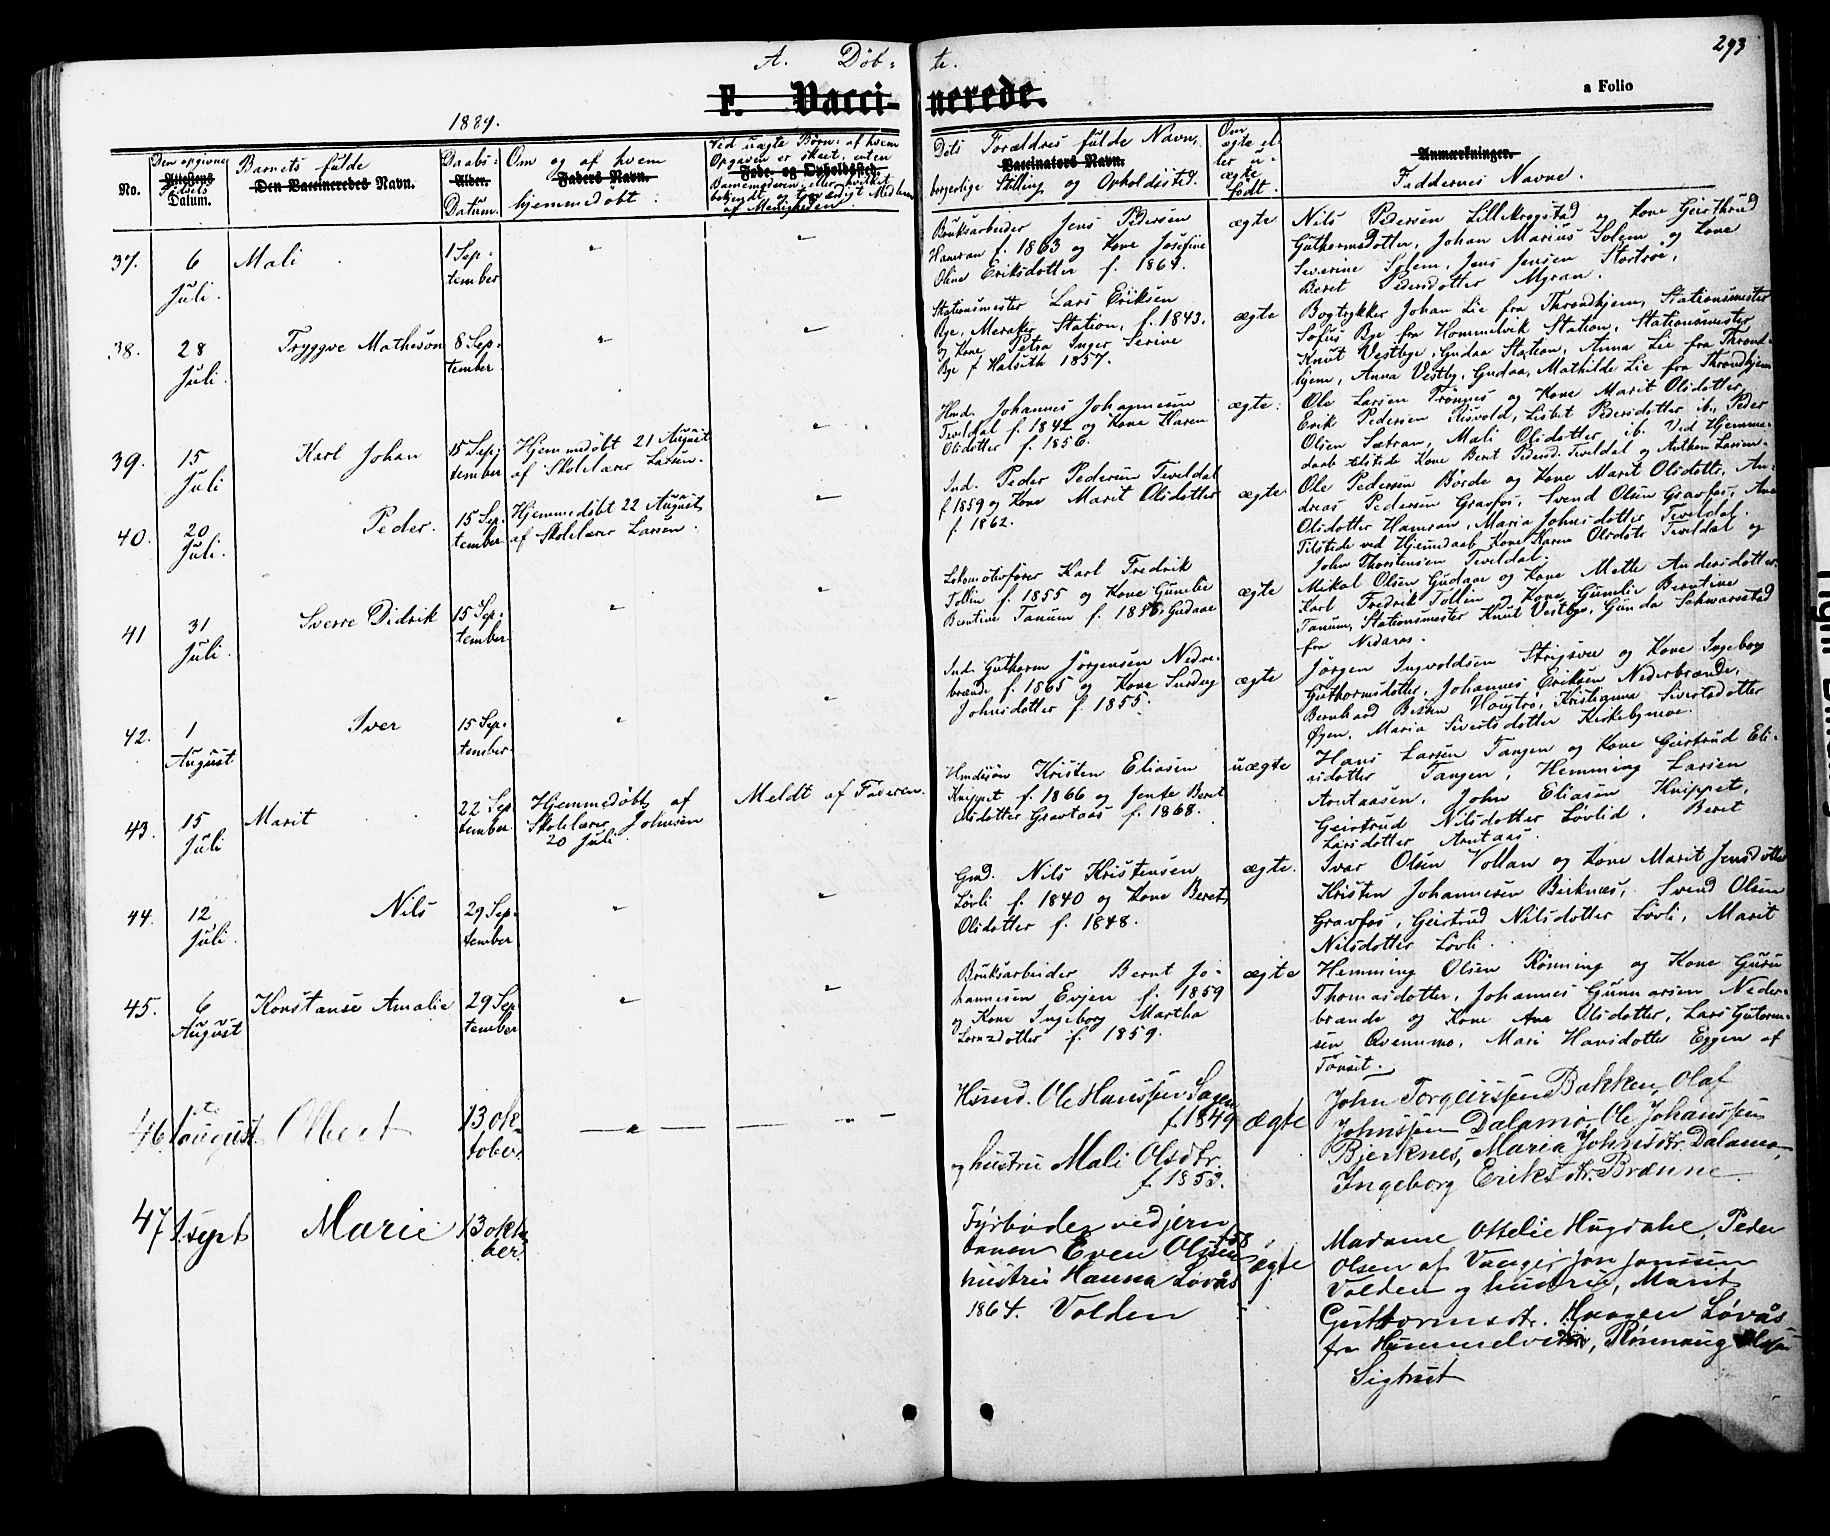 293
A. Döb- te.
F. Vacci- nerede.
a Folio
1889.
No.
Den opgivne
Attestens
Datum.
Barnets fulde
Den Vaccineredes Navn.
Daabs-
Alder.
Datum.
Om og af hvem
Faders Navn.
hjemmedøbt:
Ved uægte Børn: af hvem
Opgaven er skeet, enten
Føde- og Opholdssted.
Barnemoderen, eller hvilket
bekjendt og troværdigt Medlem
af Menigheden
Dets Forældres fulde Navn,
Vaccinators Navn.
borgerlige Stilling og Opholdssted.
Om
ægte el-
ler u-
ægte
født.
Anmærkninger.
Faddernes Navne.
37.
6
Juli.
Mali
1 Sep-
tember
"
"
Bruksarbeider Jens Pedersen
Hamran f. 1863 og Kone Josefine
Oline Eriksdotter f. 1864.
ægte
Nils Pedersen Lillekrogstad og Kone Geirthrud
Guthormsdotter, Johan Marius Solem og Kone
Severine Solem, Jens Jensen Stortroe,
Beret Pedersdotter Myran.
38.
28
Juli.
Tryggve Matheson
8 Sep-
tember
"
"
Stationsmester Lars Eriksen
Bye, Meraker Station, f. 1843.
og Kone Petra Inger Serine
Bye f Halseth 1857.
ægte
Bogtrykker Johan Lie fra Throndhjem, Stationsmester
Sofus Bye fra Hommelvik Station, Stationsmester
Knut Vestbye, Gudaa Station, Anna Lie fra Thrond-
hjem, Anna Vestby, Gudaa, Mathilde Lie fra Throndhjem
39.
15
Juli
Karl Johan
15 Sep-
tember
Hjemmedøbt 21 August
af Skolelærer Larsen.
"
Hmd. Johannes Johannesen
Teveldal f. 1842 og Kone Karen
Olidotter f. 1856.
ægte:
Ole Larsen Trönnes og Kone Marit Olidotter,
Erik Pedersen Risvold, Lisbet Pedersdotter ib., Peder
Olsen Sætran, Mali Olidotter ib. Ved Hjemme-
daab tilstede Kone Berit Pedersd. Teveldal og Anthon Larsen
40.
20
Juli.
Peder.
15 Sep-
tember
Hjemmedøbt 22 August
af Skolelærer Larsen.
"
Ind. Peder Pedersen Teveldal
f 1859 og Kone Marit Olsdotter
f. 1862.
ægte
Ole Pedersen Börde og Kone Marit Olsdotter, An-
dreas Pedersen Gravfos, Svend Olsen Gravfos, Ane
Olidotter Hamran, Maria Johnsdotter Teveldal.
Tilstede ved Hjemdaab Kone Karen Olidotr Teveldal og
John Thorstensen Teveldal.
41
31
Juli.
Sverre Didrik
15 Sep-
tember
"
"
Lokomotivfører Karl Fredrik
Tollin f. 1855 og Kone Gunelie
Berntine Tanum f. 1856, Gudaae
ægte
Mikal Olsen Gudaae og Kone Mette Andersdotter
Karl Fredrik Tollin og Kone Gunelie Berntine
Tanum, Stationsmester Knut Vestbye, Gunda Schwarsstad
fra Nidaros.
42.
1
August
Iver
15 Sep-
tember
"
"
Ind. Guthorm Jörgensen Nedre-
brænde f. 1865 og Kone Surdug
Johnsdotter f. 1855.
ægte
Jörgen Ingvoldsen Strigsvee og Kone Ingeborg
Guthormsdotter, Johannes Eriksen Nederbrænde,
Bernhard Haugtrö, Kristianna Sivertsdotter
Øyen, Maria Sivertsdotter Kirkebymoe.
43.
15
Juli
Marit
22 Sep
tember
Hjemmedøbt af
Skolelærer Johnsen
20 Juli.
Meldt af Faderen.
Hmdssøn Kristen Eliasen
Knippet f. 1866 og Jente Beret
Olsdotter Gravtaas f. 1868.
uægte
Hans Larsen Tangen og Kone Geirtrud Eli-
asdotter Tangen, Hemming Larsen
Arntaasen, John Eliasen Knippet,
Geirtrud Nilsdotter Løvlid, Beret
Larsdotter Arntaas.
44.
12
Juli.
Nils
29 Sep-
tember
"
"
Gmd. Nils Kristensen
Lövli f. 1840 og Kone Beret
Olsdotter f. 1848.
ægte.
Ivar Olsen Vollan og Kone Marit Jensdotter
Kristen Johannesen Birknæs, Svend Olsen
Gravfos, Geirtrud Nilsdotter Lövli, Marit
Nilsdotter Lövli.
45.
6
August
Konstanse Amalie
29 Sep
tember
"
"
Bruksarbeider Bernt Jo-
hannesen Evjen f. 1859
og Kone Ingeborg Martha
Lornzdotter f. 1859.
ægte
Hemming Olsen Rönning og Kone Guru
Thomasdotter, Johannes Gunnarsen Neder-
brænde og Kone Ane Olsdotter, Lars Gutorm-
sen Qvennmo, Mari Hansdotter Eggen af
Tönset.
46.
1ste
august
Olbert
13 ok-
tober
"
Hsmd. Ole Hanssen Sagen
f. 1849
og hustru Mali Olsdtr.
f. 1853.
ægte
John Torgeirssen Bakken, Olaf
Johnssen Dalamo, Ole Johanssen
Bjerknes, Maria Johnsdtr. Dalamo,
Ingeborg Eriksdtr. Brænne
47
1. sept
Marie
13 okto
ber.
Fyrbøder ved jern
banen Even Olssen f. 58
hustru Hanna Løvås
1864. Volden
ægte
Madame Ottelie Hugdahe, Peder
Olsen af Vange, Jon Jonssen
Volden og hustru, Marit
Guttormsdtr. Haagen Løvås
fra Hommelviken, Rönnaug
Sigtrut